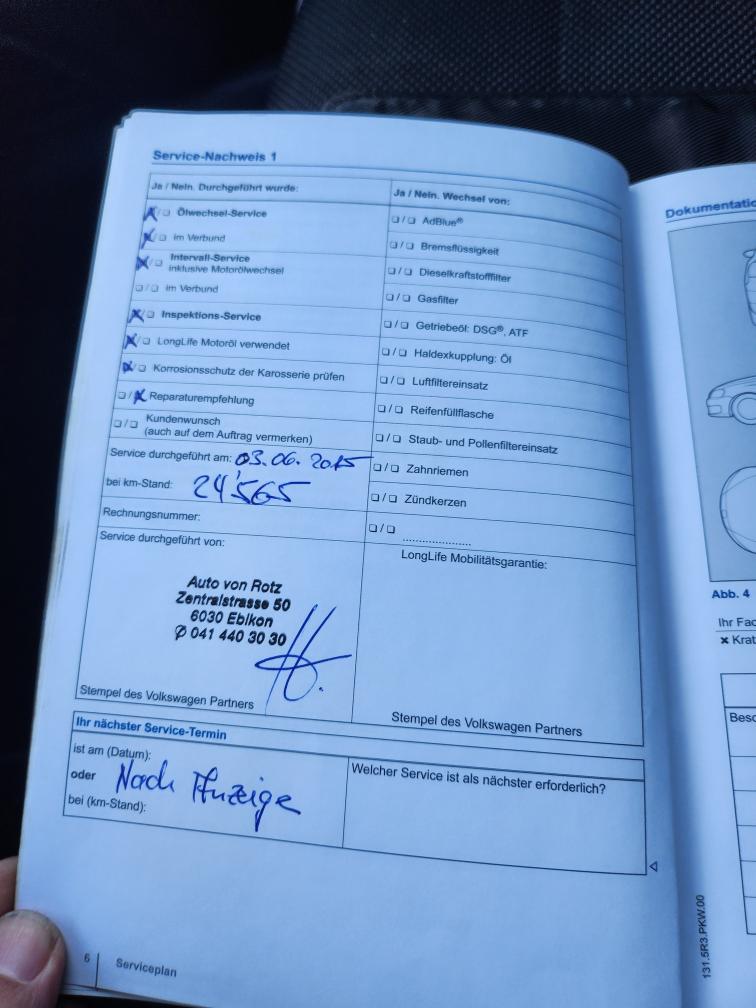 Service-Nachweis 1
Ja / Nein. Durchgeführt wurde:
☒/☐ Ölwechsel-Service
☒/☐ im Verbund
☒/☐ Intervall-Service
inklusive Motorölwechsel
☐/☐ im Verbund
☒/☐ Inspektions-Service
☒/☐ LongLife Motoröl verwendet
☒/☐ Korrosionsschutz der Karosserie prüfen
☐/☒ Reparaturempfehlung
☐/☐ Kundenwunsch
(auch auf dem Auftrag vermerken)
Service durchgeführt am: 03.06.2015
bei km-Stand: 24'565
Rechnungsnummer:
Service durchgeführt von:
Auto von Rotz
Zentralstrasse 50
6030 Ebikon
✆ 041 440 30 30
Stempel des Volkswagen Partners
Ja / Nein. Wechsel von:
☐/☐ AdBlue®
☐/☐ Bremsflüssigkeit
☐/☐ Dieselkraftstofffilter
☐/☐ Gasfilter
☐/☐ Getriebeöl: DSG®, ATF
☐/☐ Haldexkupplung: Öl
☐/☐ Luftfiltereinsatz
☐/☐ Reifenfüllflasche
☐/☐ Staub- und Pollenfiltereinsatz
☐/☐ Zahnriemen
☐/☐ Zündkerzen
☐/☐ ....................
LongLife Mobilitätsgarantie:
Stempel des Volkswagen Partners
Ihr nächster Service-Termin
ist am (Datum):
oder Nach Anzeige
bei (km-Stand):
Welcher Service ist als nächster erforderlich?
6 Serviceplan
Dokumentatio
Abb. 4
Ihr Fac
× Krat
Besc
131.5R3.PKW.00